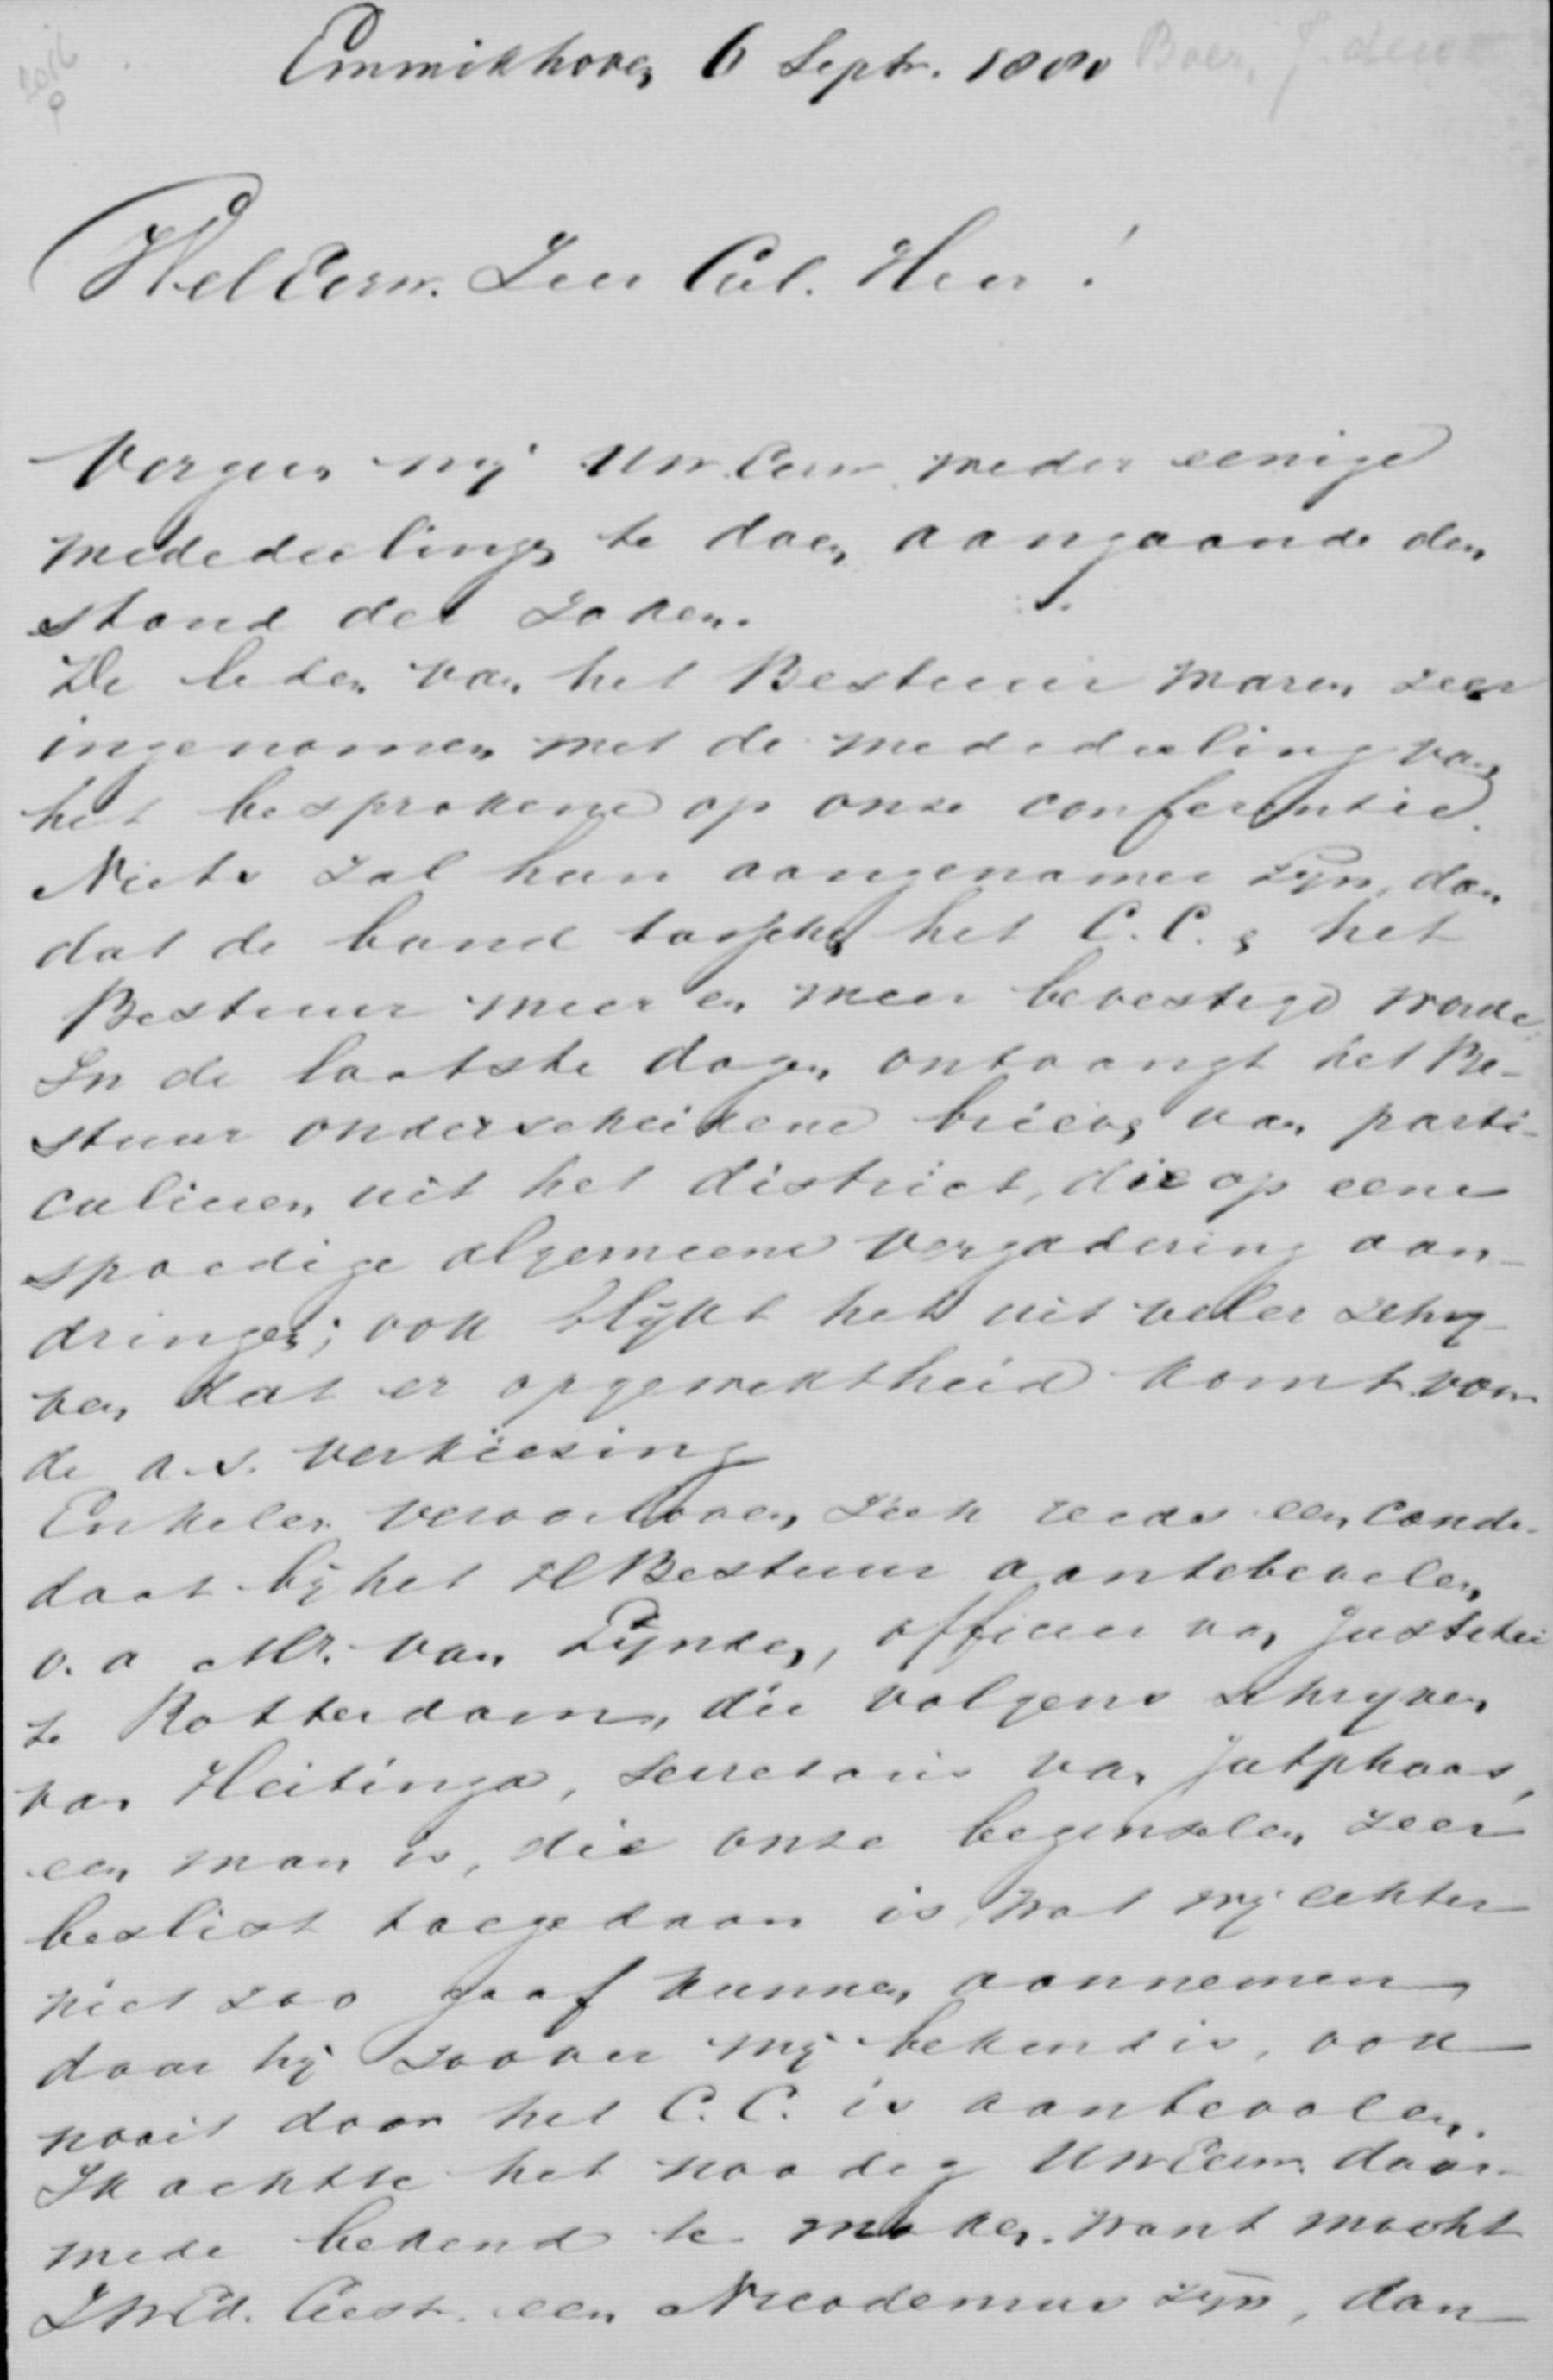 Emmikhoven 6 Septr. 1880
WelEerw. Zeer Gel. Heer!
Vergun mij UwEerw. weder eenige
mededeelingen te doen aangaande den
stand der zaken.
De leden van het Bestuur waren zeer
ingenomen met de mededeeling van
het besprokene op onze conferentie.
Niets zal hun aangenamer zijn, dan
dat de band tusschen het C.C. & het
Bestuur meer en meer bevestigd worde.
In de laatste dagen ontvangt het Be-
stuur onderscheidene brieven van parti-
culieren uit het district, die op eene
spoedige algemeene vergadering aan-
dringen; ook blijkt het uit veler schrij-
ven dat er opgewektheid komt voor
de a.s. verkiezing
Enkelen veroorloven zich reeds een candi-
daat bij het Bestuur aantebevelen
o.a Mr. van Lynden, officier van Justitie
te Rotterdam, die volgens schrijven
van Heitinga, secretaris van Jutphaas,
een man is, die onze beginselen zeer
beslist toegedaan is, wat wij echter
niet zoo gaaf kunnen aannemen
daar hij zoover mij bekend is, ook
nooit door het C.C. is aanbevolen.
Ik achtte het noodig UwEerw. daar-
mede bekend te maken. want mocht
ZWEd. Gest. een Nicodemus zijn, dan